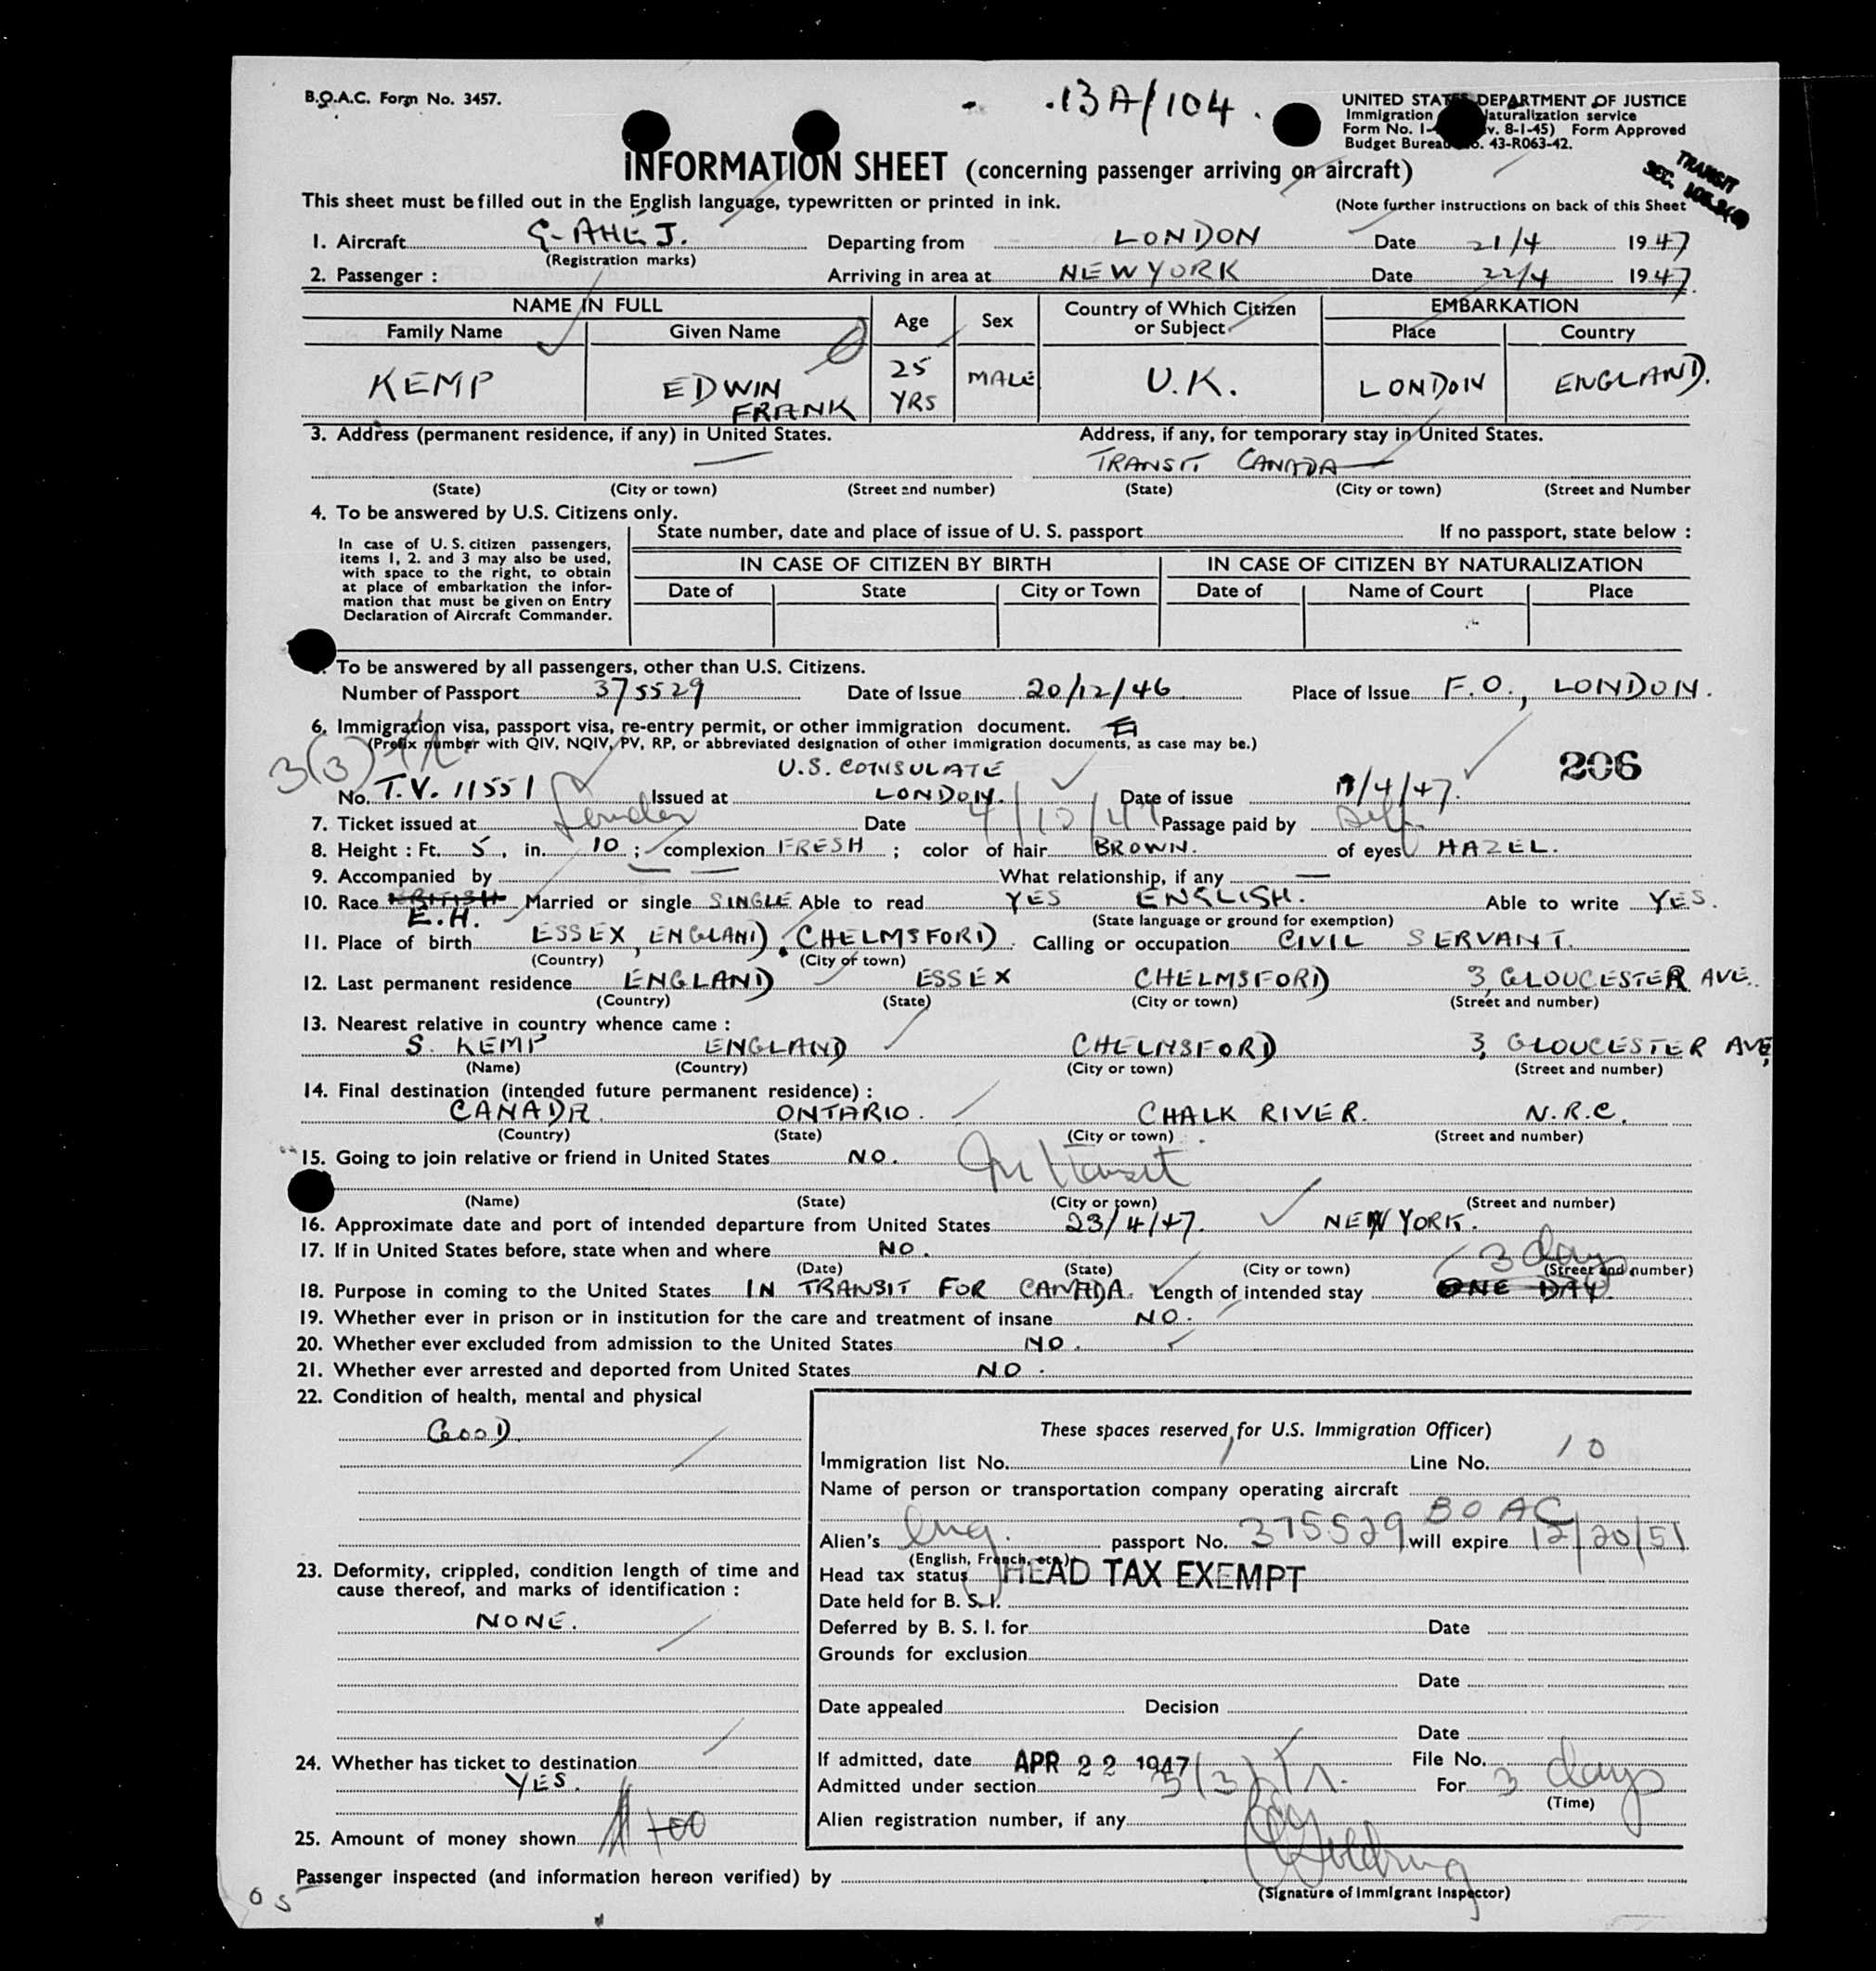 B.O.A.C. Form No. 3457.
13A/104
UNITED STATES DEPARTMENT OF JUSTICE
Immigration Naturalization service
Form No. I- v. 8-1-45) Form Approved
Budget Bureau No. 43-R063-42.
INFORMATION SHEET (concerning passenger arriving on aircraft)
TRANSIT
SEC.
This sheet must be filled out in the English language, typewritten or printed in ink.
(Note further instructions on back of this Sheet
1. Aircraft G-AHEJ. Departing from LONDON Date 21/4 1947
(Registration marks)
2. Passenger : Arriving in area at NEW YORK Date 22/4 1947.
NAME IN FULL Age Sex Country of Which Citizen or Subject EMBARKATION
Family Name Given Name Place Country
KEMP EDWIN FRANK 25 YRS MALE U.K. LONDON ENGLAND.
3. Address (permanent residence, if any) in United States. Address, if any, for temporary stay in United States.
— TRANSIT CANADA
(State) (City or town) (Street and number) (State) (City or town) (Street and Number
4. To be answered by U.S. Citizens only.
State number, date and place of issue of U. S. passport If no passport, state below :
In case of U. S. citizen passengers,
items 1, 2. and 3 may also be used,
with space to the right, to obtain
at place of embarkation the infor-
mation that must be given on Entry
Declaration of Aircraft Commander.
IN CASE OF CITIZEN BY BIRTH IN CASE OF CITIZEN BY NATURALIZATION
Date of State City or Town Date of Name of Court Place
To be answered by all passengers, other than U.S. Citizens.
Number of Passport 375529 Date of Issue 20/12/46 Place of Issue F.O., LONDON.
6. Immigration visa, passport visa, re-entry permit, or other immigration document.
(Prefix number with QIV, NQIV, PV, RP, or abbreviated designation of other immigration documents, as case may be.)
3(3)
206
U.S. CONSULATE
No. T.V. 11551 Issued at LONDON. Date of issue /4/47.
7. Ticket issued at London Date 4/10/47 Passage paid by Self
8. Height : Ft. 5, in. 10 ; complexion FRESH ; color of hair BROWN. of eyes HAZEL.
9. Accompanied by — What relationship, if any —
10. Race BRITISH Married or single SINGLE Able to read YES ENGLISH. Able to write YES.
E.H. (State language or ground for exemption)
11. Place of birth ESSEX, ENGLAND. CHELMSFORD. Calling or occupation CIVIL SERVANT.
(Country) (City or town)
12. Last permanent residence ENGLAND ESSEX CHELMSFORD 3, GLOUCESTER AVE.
(Country) (State) (City or town) (Street and number)
13. Nearest relative in country whence came :
S. KEMP ENGLAND CHELMSFORD 3, GLOUCESTER AVE,
(Name) (Country) (City or town) (Street and number)
14. Final destination (intended future permanent residence) :
CANADA. ONTARIO. CHALK RIVER. N.R.C.
(Country) (State) (City or town) (Street and number)
15. Going to join relative or friend in United States NO. In transit
(Name) (State) (City or town) (Street and number)
16. Approximate date and port of intended departure from United States 23/4/47. NEW YORK.
17. If in United States before, state when and where NO. 3 days
(Date) (State) (City or town) (Street and number)
18. Purpose in coming to the United States IN TRANSIT FOR CANADA. Length of intended stay ONE DAY.
19. Whether ever in prison or in institution for the care and treatment of insane NO.
20. Whether ever excluded from admission to the United States NO.
21. Whether ever arrested and deported from United States NO.
22. Condition of health, mental and physical
GOOD.
23. Deformity, crippled, condition length of time and
cause thereof, and marks of identification :
NONE.
24. Whether has ticket to destination
YES.
25. Amount of money shown $100
These spaces reserved for U.S. Immigration Officer)
Immigration list No. Line No. 10
Name of person or transportation company operating aircraft
BOAC
Alien's Eng. passport No. 375529 will expire 12/20/51
(English, French, etc.)
Head tax status HEAD TAX EXEMPT
Date held for B. S. I.
Deferred by B. S. I. for Date
Grounds for exclusion
Date
Date appealed Decision
Date
If admitted, date APR 22 1947 File No.
Admitted under section 3(3) For 3 days
(Time)
Alien registration number, if any
Passenger inspected (and information hereon verified) by
(Signature of Immigrant Inspector)